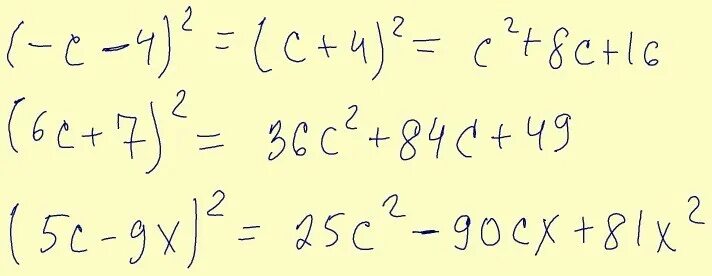 (-c-4)² = (c+4)² = c²+8c+16
(6c+7)² = 36c²+84c+49
(5c-9x)² = 25c²-90cx+81x²